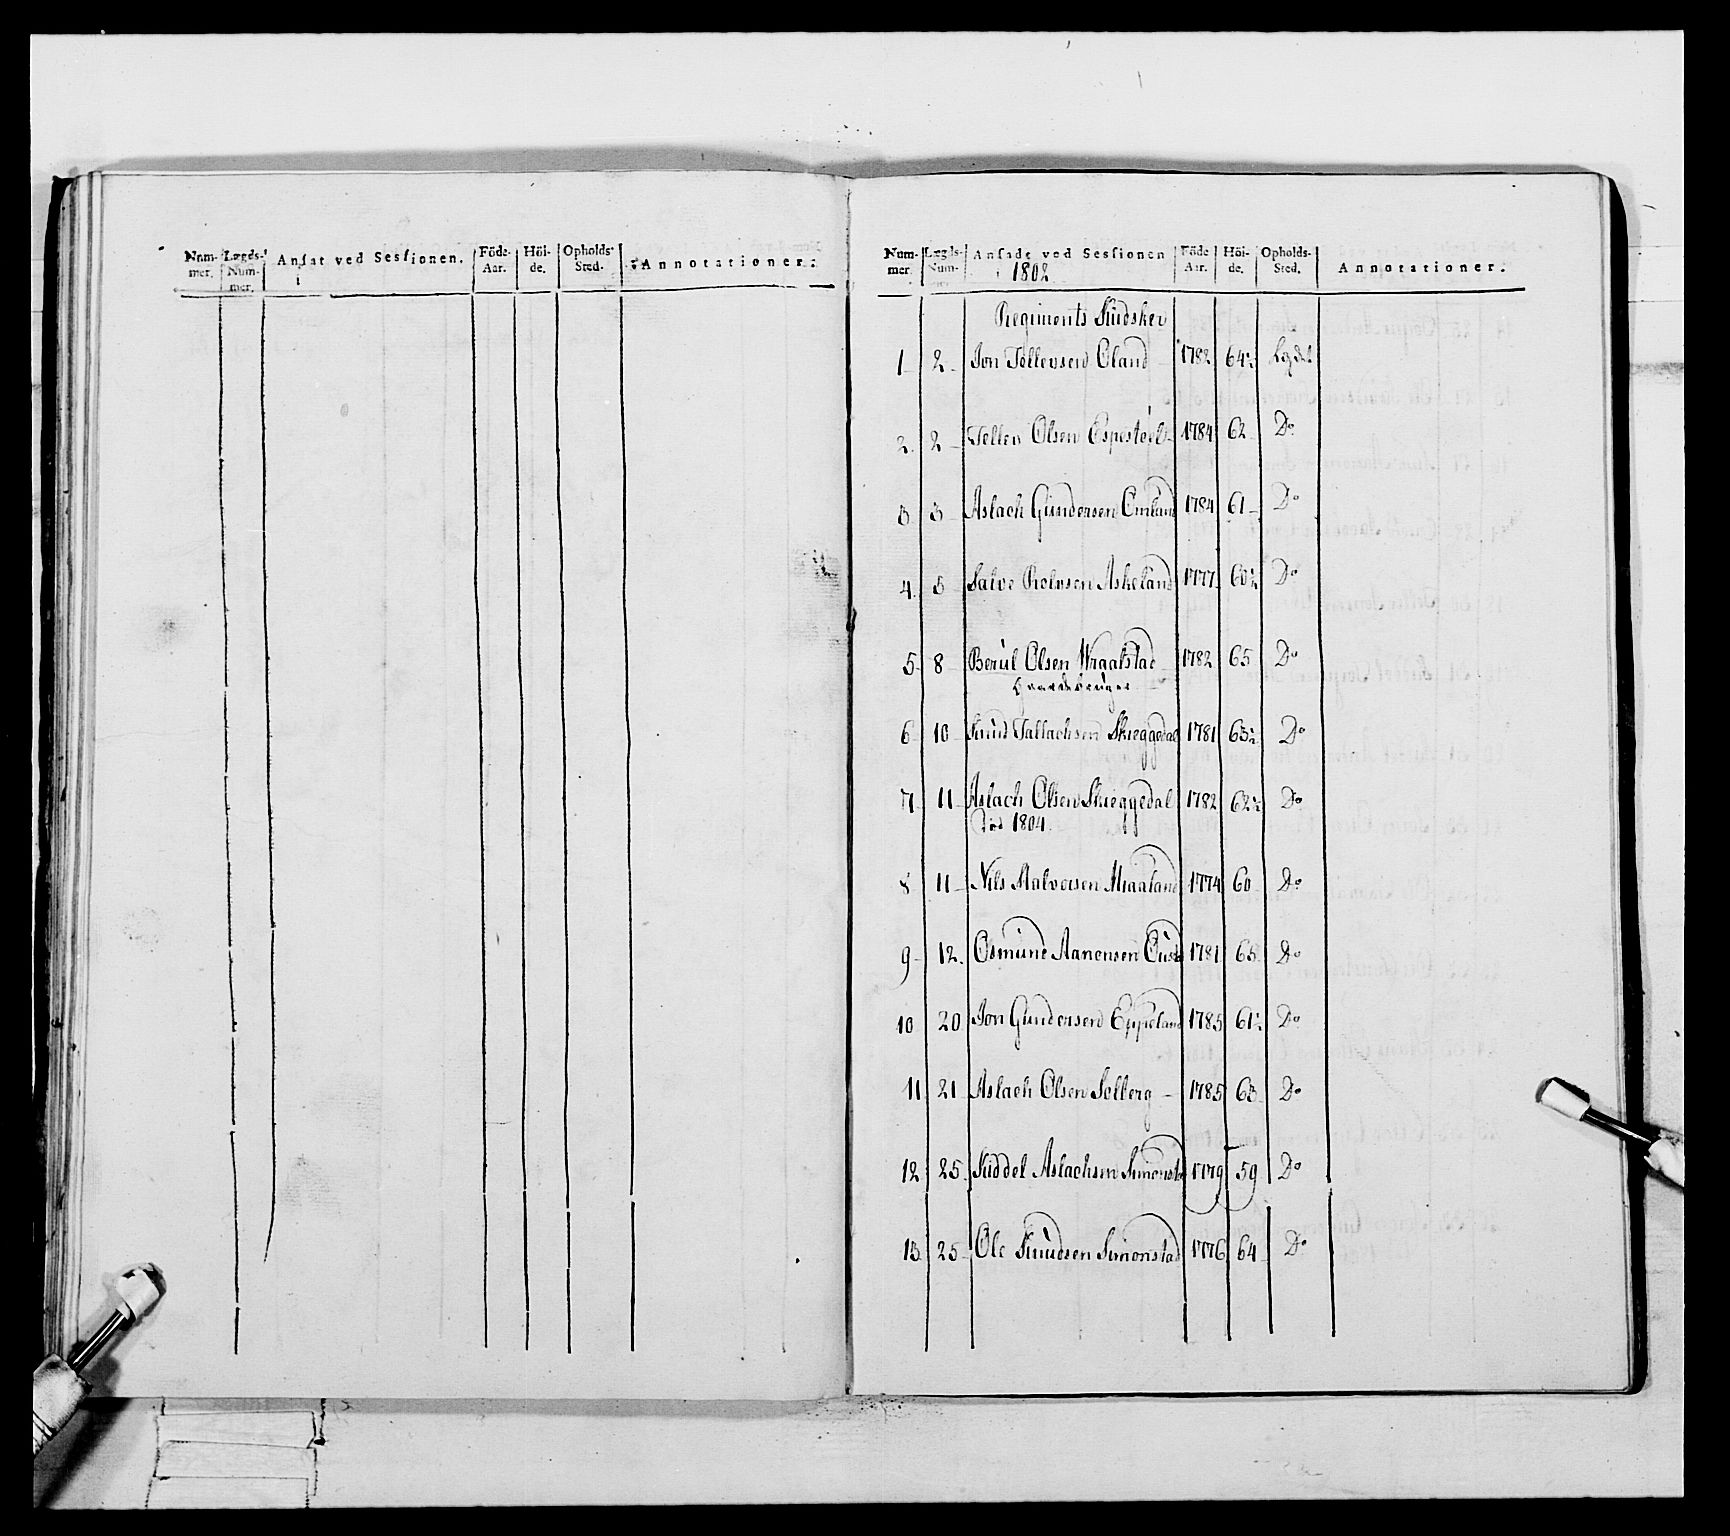 Num- mer. Lægds- Num- mer. Ansat ved Sessionen. Föde- Aar. Höi- de. Opholds- Sted. Annotationer.
Num- mer. Lægds- Num- Ansatte ved Sessionen Föde Aar. Höi- de. Opholds- Sted. Annotationer.
i 1802
Regiments Kudsker
1 2 Jon Tellevsen Oland 1782 64½ Lægdet
2. 2 Tellev Olsen 1784 62 Do
3 3 Aslach Gundersen Omland 1784 61 Do
4. 5 Salve Rolvsen Askeland 1777 60½ Do
5 8 Berul Olsen Wraalstad 1782 65 Do
Gaardbruger
6 10 Knud Tallachsen Skieggedal 1781 63½ Do
7 11 Aslach Olsen Skieggedal 1782 62½ Do
Död 1804
8 11 Nils Halvorsen Hraaland 1774 60 Do
9 12. Osmund Aanensen 1781 63 Do
10 20 Jon Gundersen Eppeland 1785 61½ Do
11 21 Aslach Olsen Solberg 1785 63 Do
12 25. Kiddel Aslachsen Simonstad 1779 59 Do
13 25 Ole Knudsen Simonstad 1776 64 Do